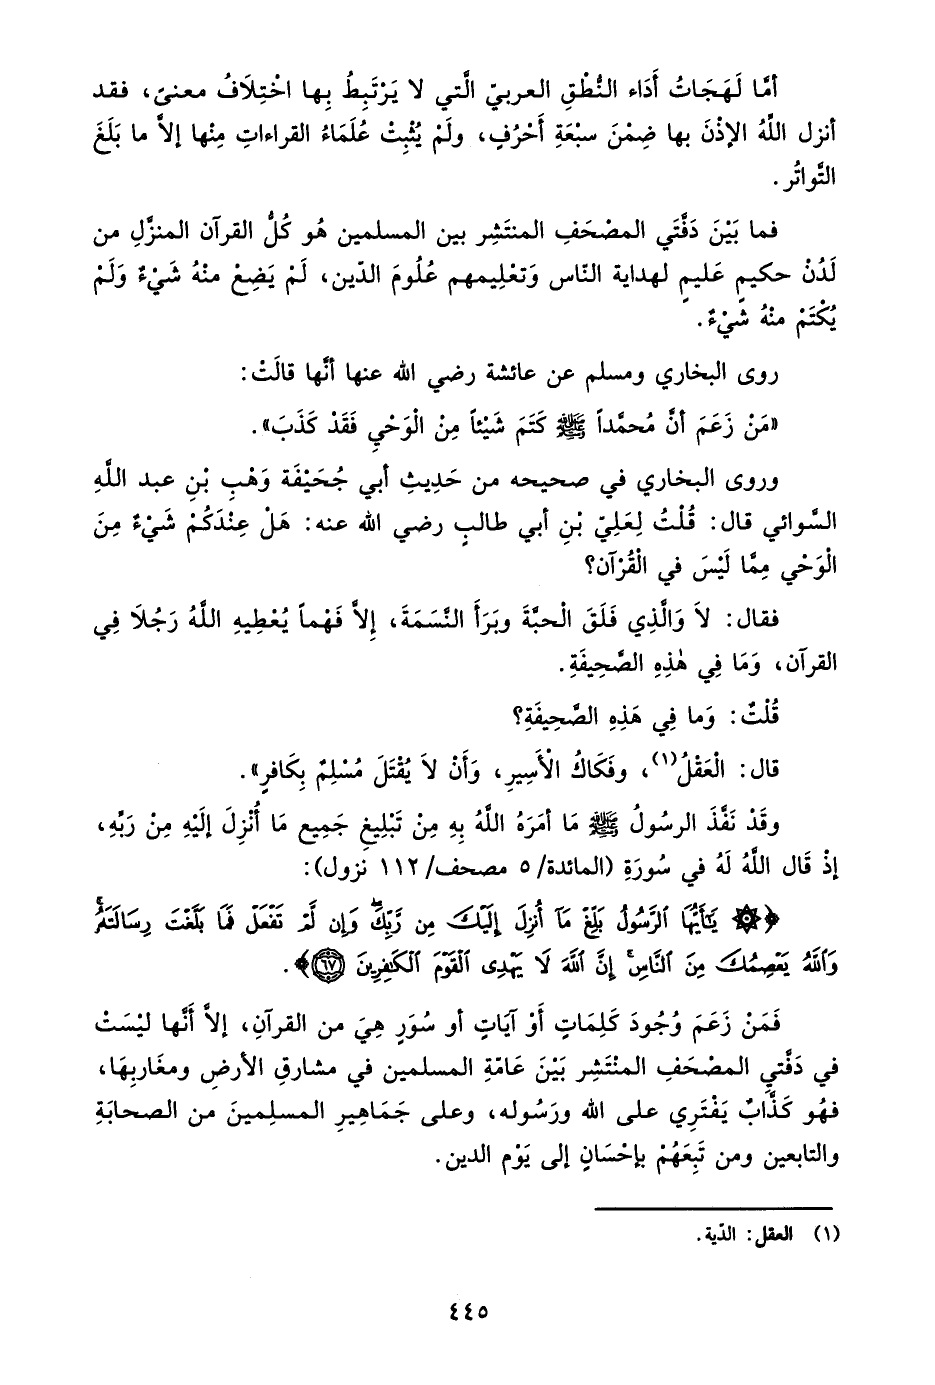 أمَّا لَهَجَاتُ أَدَاء النُّطْقِ العربيّ الَّتي لا يَرْتَبِطُ بِها اخْتِلَافُ معنىً، فقد
أنزل اللَّهُ الإذْنَ بها ضِمْنَ سبْعَةِ أَحْرُفٍ، ولَمْ يُثْبِتْ عُلَمَاءُ القراءاتِ مِنْها إلاَّ ما بَلَغَ
التَّواتُر.
فما بَيْنَ دَفَّتَي المصْحَفِ المنتَشِر بين المسلمين هُو كُلُّ القرآن المنزَّلِ من
لَدُنْ حكيمٍ عَليمٍ لهداية النّاس وَتعْلِيمهم عُلُومَ الدّين، لَمْ يَضِعْ منْهُ شَيْءٌ وَلَمْ
يُكْتَمْ منْهُ شَيْءٌ.
روى البخاري ومسلم عن عائشة رضي الله عنها أنَّها قالَتْ:
«مَنْ زَعَمَ أنَّ مُحمَّداً ﷺ كَتَمَ شَيْئاً مِنْ الْوَحْيِ فَقَدْ كَذَبَ».
وروى البخاري في صحيحه من حَدِيثِ أبي جُحَيْفَة وَهْبِ بْنِ عبد اللَّهِ
السَّوائي قال: قُلْتُ لِعَلِيّ بْنِ أبي طالبٍ رضي الله عنه: هَلْ عِنْدَكُمْ شَيْءٌ مِنَ
الْوَحْي مِمَّا لَيْسَ في الْقُرْآن؟
فقال: لاَ وَالَّذِي فَلَقَ الْحبَّةَ وبَرَأَ النَّسَمَةَ، إِلاَّ فَهْماً يُعْطِيهِ اللَّهُ رَجُلاَ فِي
القرآن، وَمَا فِي هٰذِهِ الصَّحِيفَةِ.
قُلْتٌ: وَما فِي هَذِهِ الصَّحِيفَةِ؟
قال: الْعَقْلُ(١)، وفَكَاكُ الْأَسِيرِ، وَأَنْ لاَ يُقْتَلَ مُسْلِمٌ بِكَافرٍ».
وقَدْ نَفَّذَ الرسُولُ ﷺ مَا أمَرَهُ اللَّهُ بِهِ مِنْ تَبْلِيغِ جَمِيع مَا أُنْزِلَ إلَيْهِ مِنْ رَبِّهِ،
إذْ قَال اللَّهُ لَهُ في سُورَةِ (المائدة/ ٥ مصحف/ ١١٢ نزول):
﴿۞ يَٰٓأَيُّهَا ٱلرَّسُولُ بَلِّغْ مَآ أُنزِلَ إِلَيْكَ مِن رَّبِّكَۖ وَإِن لَّمْ تَفْعَلْ فَمَا بَلَّغْتَ رِسَالَتَهُۥۚ
وَٱللَّهُ يَعْصِمُكَ مِنَ ٱلنَّاسِۗ إِنَّ ٱللَّهَ لَا يَهْدِى ٱلْقَوْمَ ٱلْكَٰفِرِينَ ٦٧﴾.
فَمَنْ زَعَمَ وُجُودَ كَلِمَاتٍ أَوْ آيَاتٍ أو سُوَرٍ هِيَ من القرآنِ، إلاَّ أنَّها ليْسَتْ
في دَفَّتيِ المصْحَفِ المنْتَشِر بَيْنَ عَامّةِ المسلمين في مشارقِ الأرضِ ومغَاربِهَا،
فهُو كَذَّابٌ يَفْتَرِي على الله ورَسُوله، وعلى جَمَاهِيرِ المسلِمينَ من الصحابَةِ
والتابعين ومن تَبِعَهُمْ بإحْسَانٍ إلى يَوْم الدين.
(١) العقل: الدّية.
٤٤٥